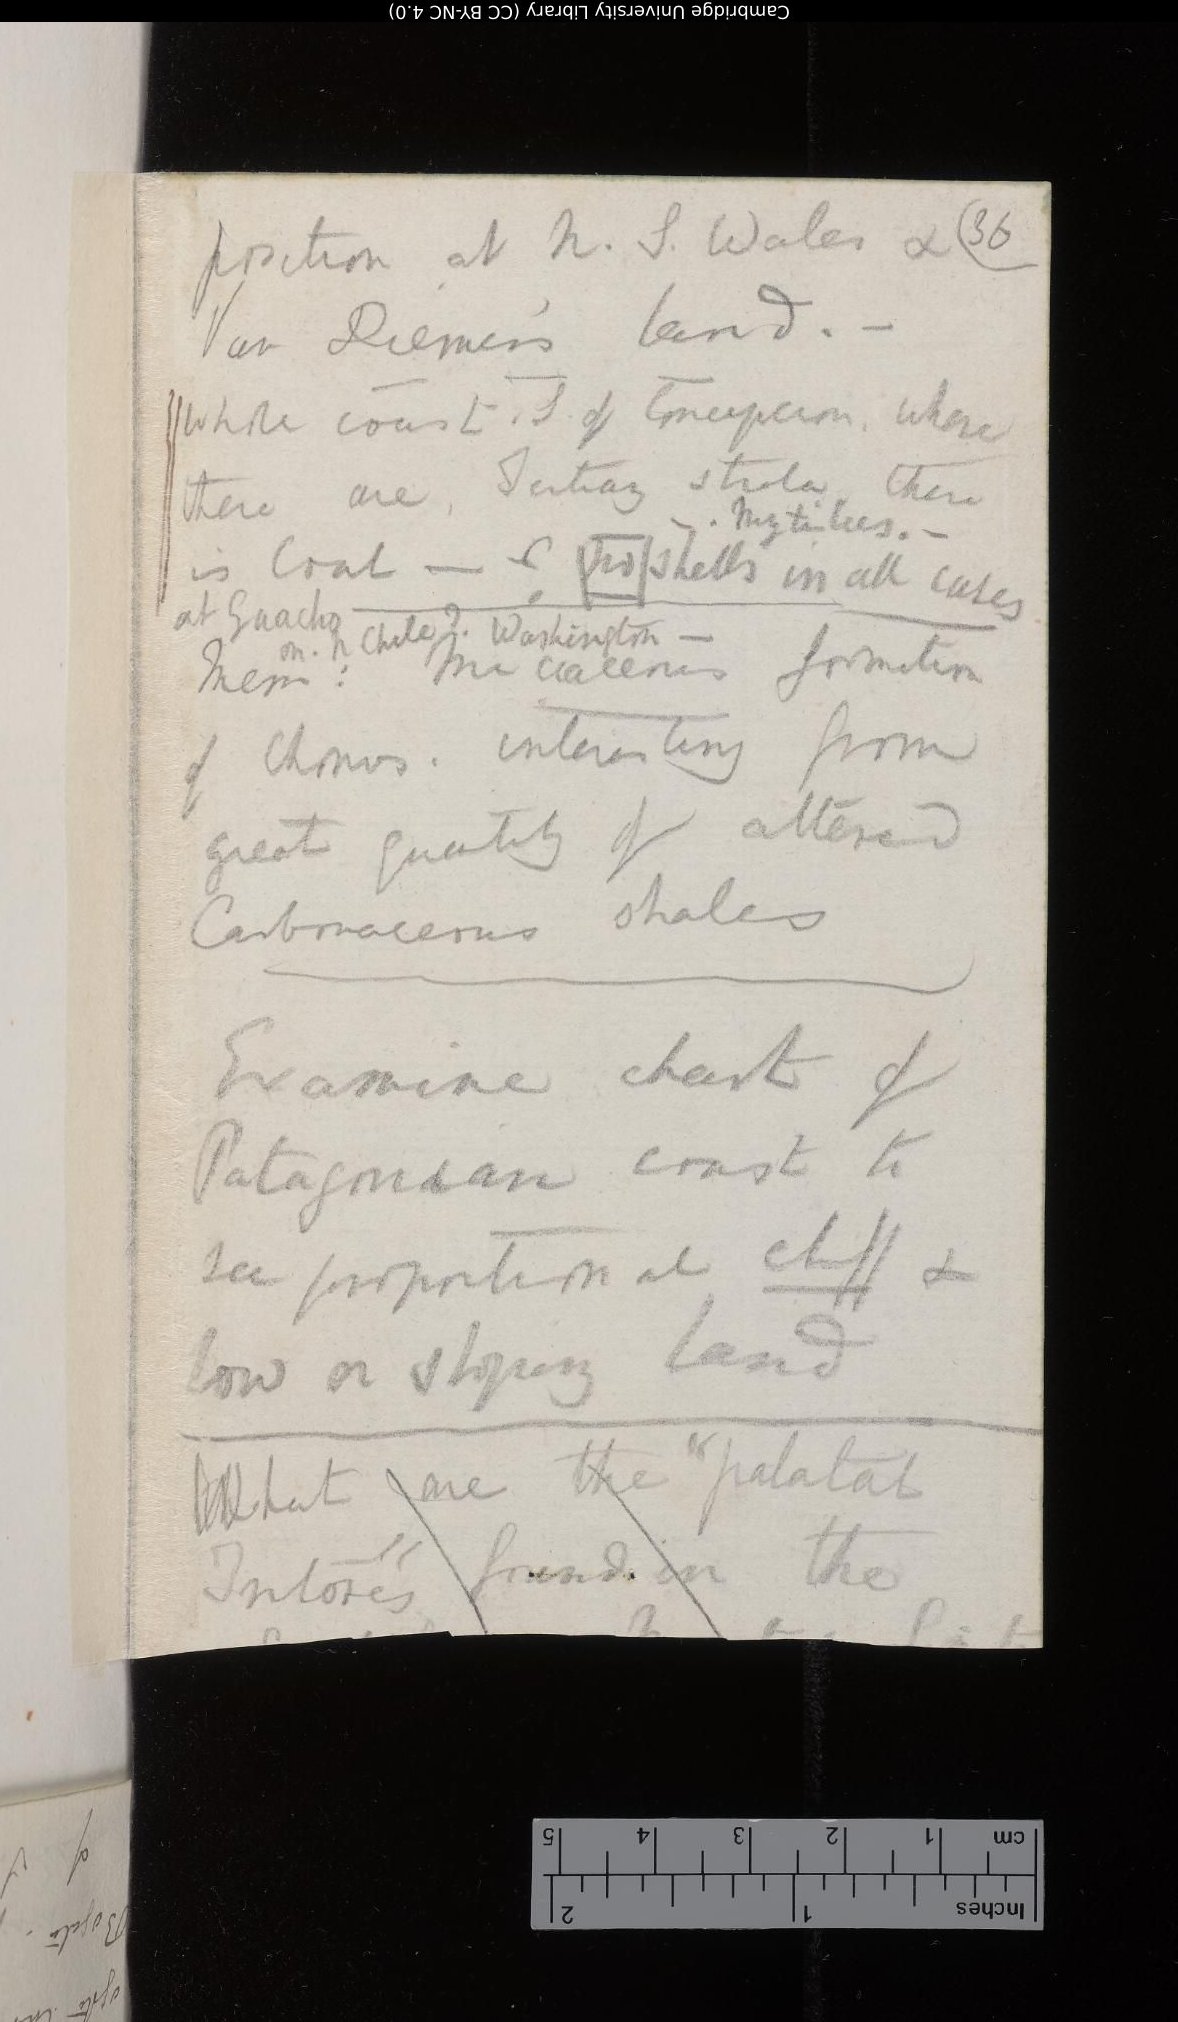 Cambridge University Library (CC BY-NC 4.0)
position at N. S. Wales & (36
Van Diemen's land. —
Whole coast S. of Concepcion, where
there are, Tertiary strata, there
. Mytiluses. —
is Coal — & No shells in all cases
at Guacho
on. N Chile. Washington —
Mem: Micaceous formation
of Chonos. interesting from
great quantity of altered
Carbonaceous shales
Examine chart of
Patagonian coast to
see proportional cliff &
low or sloping land
What are the "palatal
Tritores" found in the
cm 1 2 3 4 5
Inches 1 2
of
Bogota.